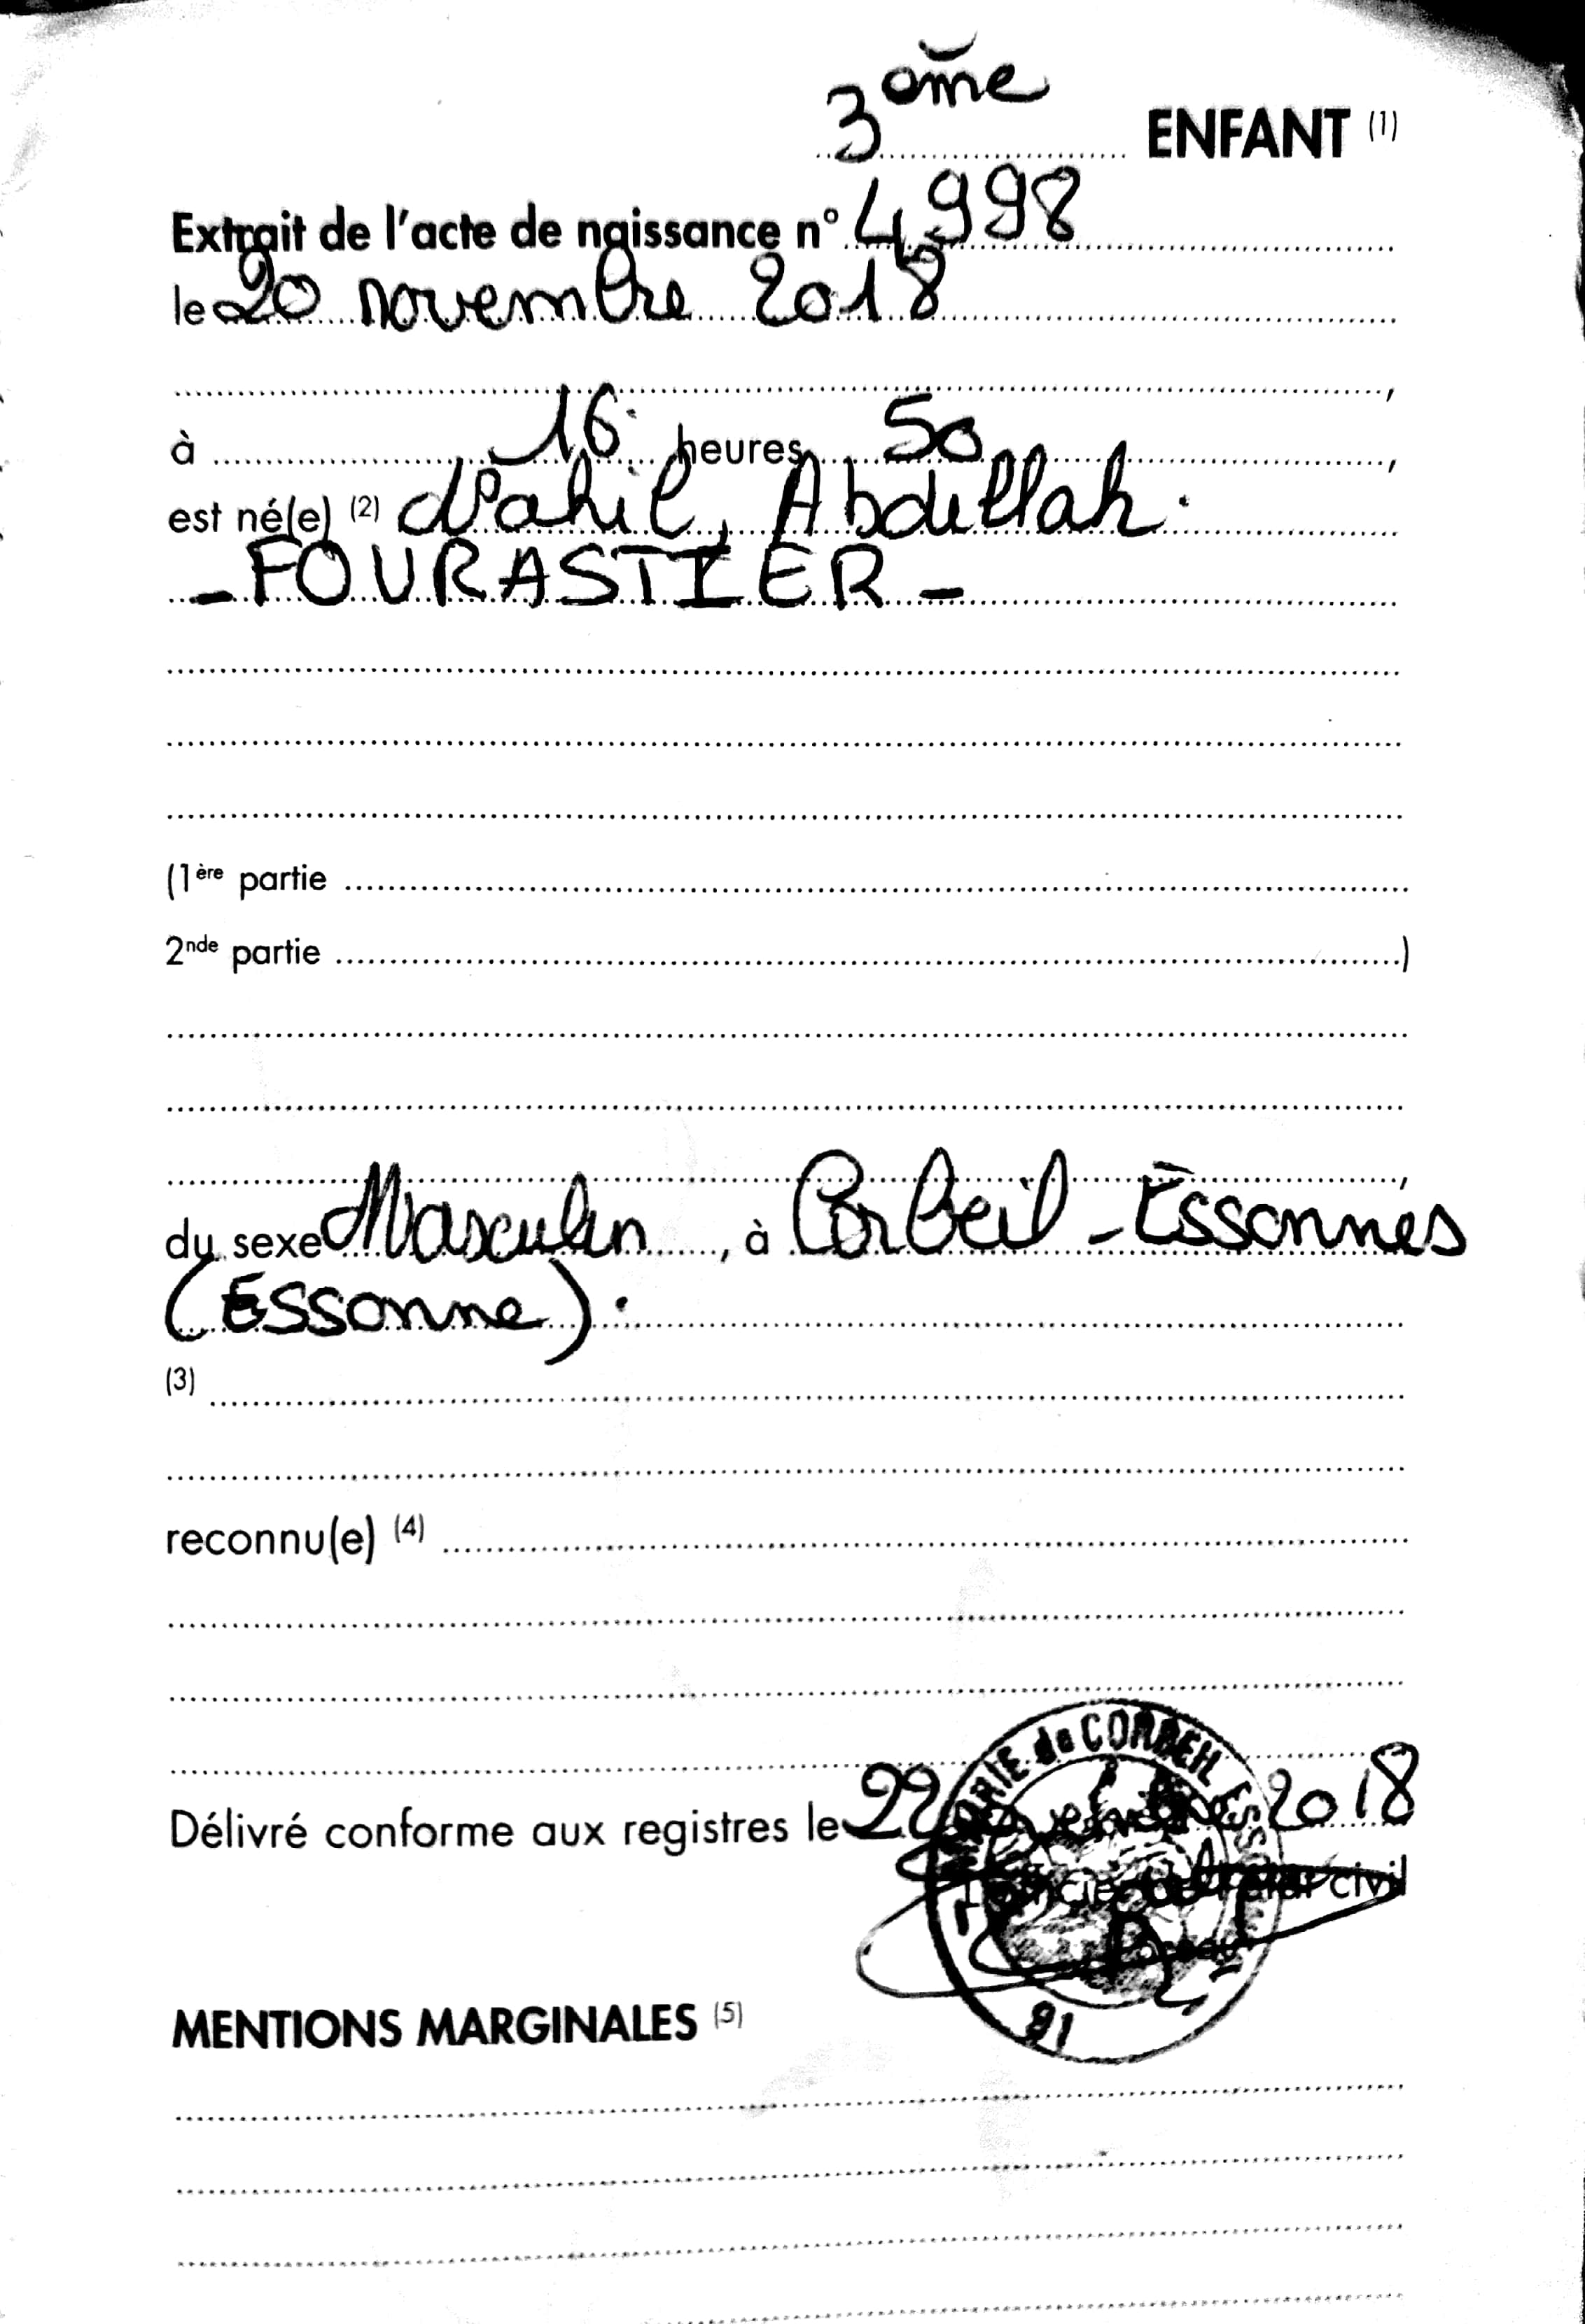 3ème ENFANT (1)
Extrait de l'acte de naissance n° 4998
le 20 novembre 2018
,
à 16 heures 50 ,
est né(e) (2) Wahil, Abdellah.
- FOURASTIER -
(1ère partie
2nde partie )
,
du sexe Masculin, à Corbeil-Essonnes
(Essonne).
(3)
reconnu(e) (4)
MAIRIE de CORBEIL ESSONNES
Délivré conforme aux registres le 22 novembre 2018
L'officier de l'état civil
91
MENTIONS MARGINALES (5)